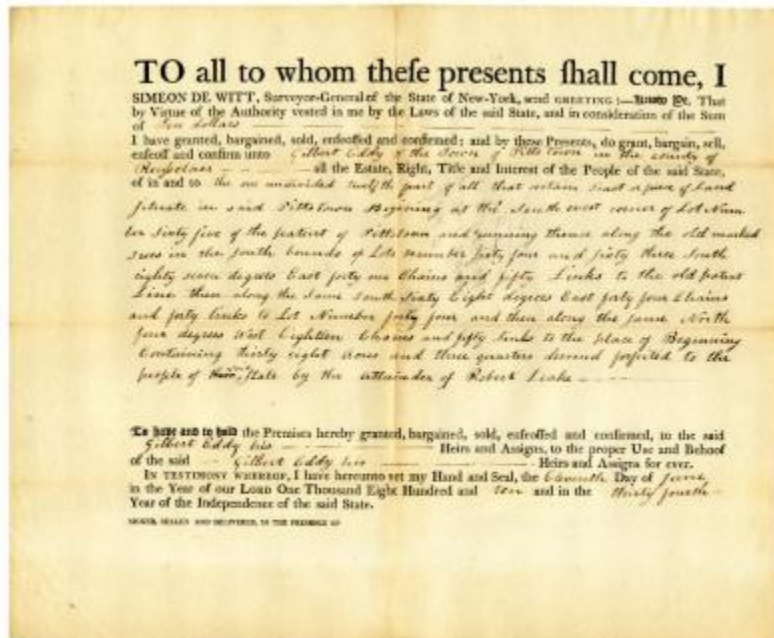 TO all to whom theſe presents ſhall come, I
SIMEON DE WITT, Surveyor-General of the State of New-York, send GREETING:—Know Ye, That
by Virtue of the Authority vested in me by the Laws of the said State, and in consideration of the Sum
of Ten dollars
I have granted, bargained, sold, enfeoffed and confirmed; and by these Presents, do grant, bargain, sell,
enfeoff and confirm unto Gilbert Eddy of the Town of Pittstown in the county of
Rensselaer all the Estate, Right, Title and Interest of the People of the said State,
of in and to the one undivided twelfth part of all that certain tract or piece of Land
situate in said Pittstown Begining at the South west corner of Lot Num
ber sixty five of the patent of Pittstown and running thence along the old marked
trees in the south bounds of Lots number sixty four and sixty three South
eighty seven degrees East forty one Chains and fifty Links to the old patent
Line then along the same South Sixty Eight degrees East forty four Chains
and forty links to Lot Number forty four and then along the same North
four degrees West Eighteen Chains and fifty links to the place of Beginning
Containing thirty eight acres and three quarters deemed forfeited to the
people of State by the attainder of Robert Leake
To have and to hold the Premises hereby granted, bargained, sold, enfeoffed and confirmed, to the said
Gilbert Eddy his Heirs and Assigns, to the proper Use and Behoof
of the said Gilbert Eddy his Heirs and Assigns for ever.
IN TESTIMONY WHEREOF, I have hereunto set my Hand and Seal, the Eleventh Day of June
in the Year of our LORD One Thousand Eight Hundred and ten and in the thirty fourth
Year of the Independence of the said State.
SIGNED, SEALED AND DELIVERED, IN THE PRESENCE OF